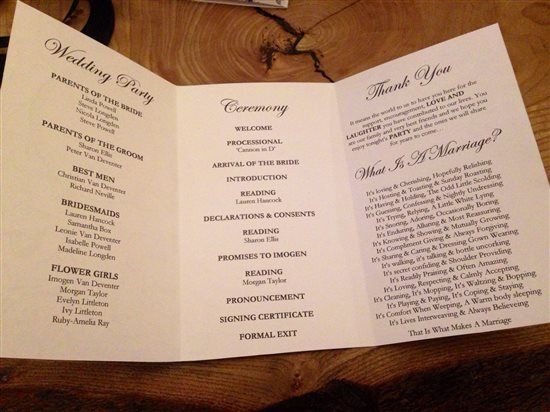 Wedding Party
PARENTS OF THE BRIDE
Linda Powell
Steve Longden
Nicola Longden
Steve Powell
PARENTS OF THE GROOM
Sharon Ellis
Peter Van Deventer
BEST MEN
Christian Van Deventer
Richard Neville
BRIDESMAIDS
Lauren Hancock
Samantha Box
Leonie Van Deventer
Isabelle Powell
Madeline Longden
FLOWER GIRLS
Imogen Van Deventer
Morgan Taylor
Evelyn Littleton
Ivy Littleton
Ruby-Amelia Ray
Ceremony
WELCOME
PROCESSIONAL
'Cannon in D'
ARRIVAL OF THE BRIDE
INTRODUCTION
READING
Lauren Hancock
DECLARATIONS & CONSENTS
READING
Sharon Ellis
PROMISES TO IMOGEN
READING
Morgan Taylor
PRONOUNCEMENT
SIGNING CERTIFICATE
FORMAL EXIT
Thank You
It means the world to us to have you here for the
support, encouragement, LOVE AND
LAUGHTER you have contributed to our lives. You
are our family and very best friends and we hope you
enjoy tonight's PARTY and the ones we will share
for years to come...
What Is A Marriage?
It's loving & Cherishing, Hopefully Relishing
It's Hosting & Toasting & Sunday Roasting
It's Having & Holding, The Odd Little Scolding
It's Guessing, Confessing & Nightly Undressing
It's Trying, Relying, A Little White Lying
It's Snoring, Adoring, Occasionally Boring
It's Enduring, Alluring & Most Reassuring
It's Knowing & Showing & Mutually Growing
It's Compliment Giving & Always Forgiving
It's Sharing & Caring & Dressing Gown Wearing
It's walking, it's talking & bottle uncorking
It's secret confiding & Shoulder Providing
It's Readily Praising & Often Amazing
It's Loving, Respecting & Calmly Accepting
It's Cleaning, It's Mopping, It's Waltzing & Bopping
It's Playing & Paying, It's Coping & Staying
It's Comfort When Weeping, A Warm body sleeping
It's Lives Interweaving & Always Believeing
That Is What Makes A Marriage